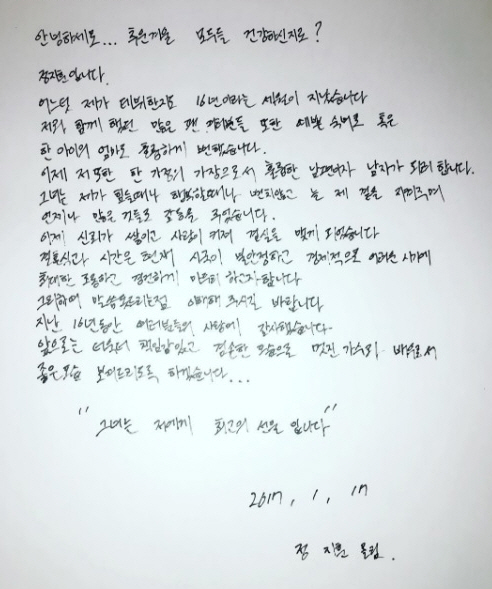 안녕하세요... 추운겨울 모두들 건강하신지요?
정지훈입니다.
어느덧 제가 데뷔한지도 16년이라는 세월이 지났습니다
저와 함께 했던 많은 팬 여러분들 또한 예쁜 숙녀로 혹은
한 아이의 엄마로 훌륭하게 변했습니다.
이제 저 또한 한 가정의 가장으로서 훌륭한 남편이자 남자가 되려 합니다.
그녀는 제가 힘들때나 행복할때나 변치않고 늘 제 곁을 지켜주며
언제나 많은 것들로 감동을 주었습니다.
이제 신뢰가 쌓이고 사랑이 커져 결실을 맺게 되었습니다
결혼식과 시간은 현재 시국이 불안정하고 경제적으로 어려운 시기에
최대한 조용하고 경건하게 마무리 하고자합니다
그리하여 말씀못드리는점 이해해 주시길 바랍니다
지난 16년동안 여러분들의 사랑에 감사했습니다.
앞으로는 더욱더 책임감있고 겸손한 모습으로 멋진 가수 배우로서
좋은모습 보여드리도록 하겠습니다...
"그녀는 저에게 최고의 선물 입니다"
2017. 1. 17
정 지훈 올림.